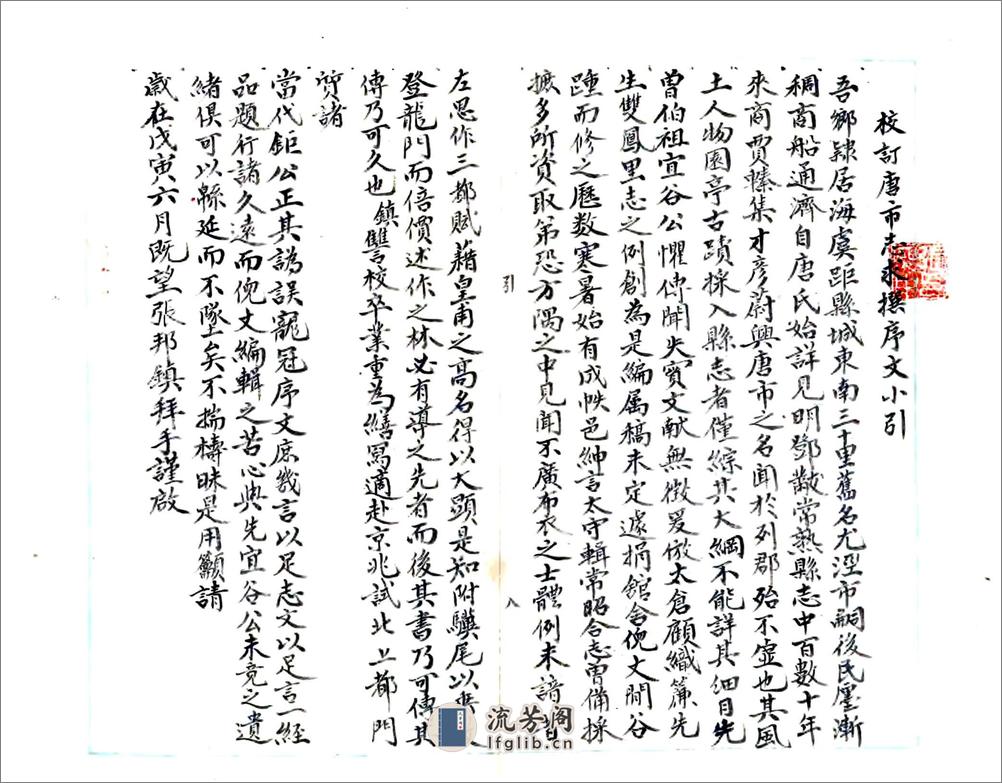 校訂唐市志求撰序文小引
吾鄉隸居海虞距縣城東南三十里舊名尤涇市嗣後民廛漸
稠商船通濟自唐氏始詳見明鄧韍常熟縣志中百數十年
來商賈輳集才彥蔚興唐市之名聞於列郡殆不虛也其風
土人物園亭古蹟採入縣志者僅綜其大綱不能詳其細目先
曾伯祖宜谷公懼傳聞失實文献無徵爰倣太倉顧織簾先
生雙鳳里志之例創為是編属稿未定遽捐舘舍倪丈閒谷
踵而修之歷数寒暑始有成帙邑紳言太守輯常昭合志曾備採
摭多所資取第恐方隅之中見聞不廣布衣之士體例未諳昔
左思作三都賦藉皇甫之髙名得以大顕是知附驥尾以
登龍門而倍價述作之林必有導之先者而後其書乃可傳其
傳乃可久也鎮讐校卒業重為繕寫適赴京兆試北上都門
貭諸
當代鉅公正其譌誤寵冠序文庶幾言以足志文以足言一經
品題行諸久遠而倪丈編輯之苦心與先宜谷公未竟之遺
緒俱可以緜延而不墜矣不揣檮昧是用籲請
歲在戊寅六月既望張邦鎮拜手謹啟
引
八
流芳阁
lfglib.cn